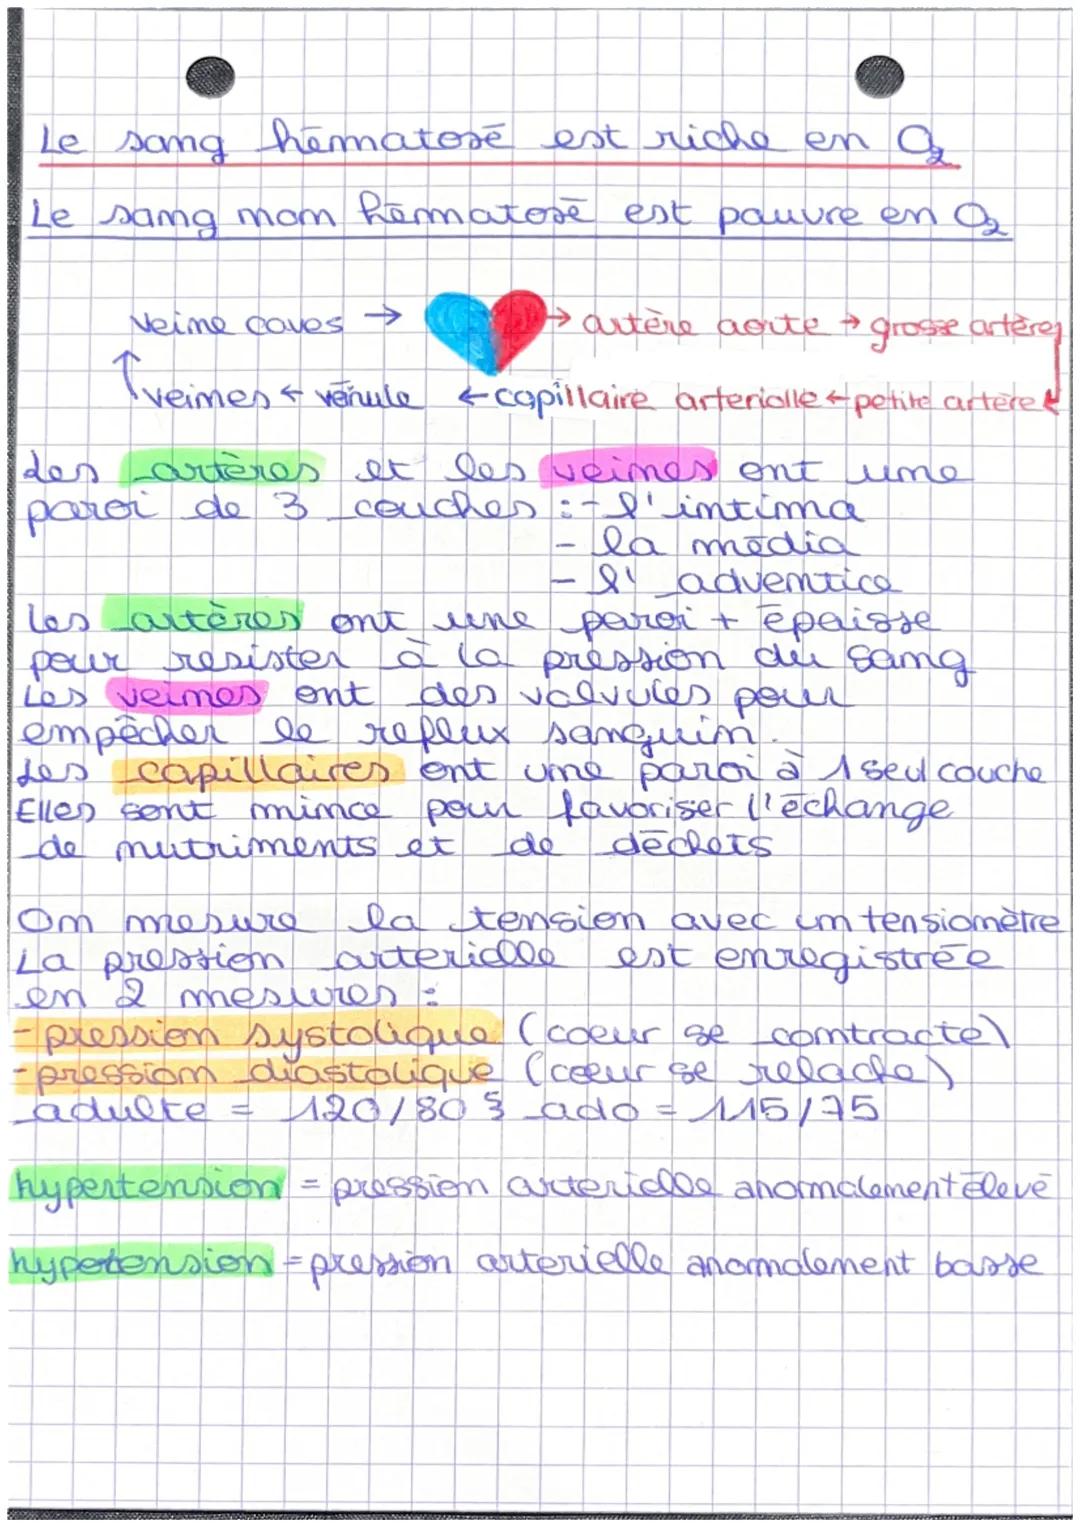 Le sang hématosé est riche en O₂
Le sang non hématosé est pauvre en O₂
veine caves → → artère aorte → grosse artères
↑ veines ← vénule ← capillaire arterielle ← petite artère
Les artères et les veines ont une
paroi de 3 couches : - l'intima
- la média
- l' adventice
les artères ont une paroi + épaisse
pour resister à la pression du sang
Les veines ont des valvules pour
empêcher le reflux sanguin.
Les capillaires ont une paroi à 1 seul couche
Elles sont mince pour favoriser l'échange
de nutriments et de déchets
On mesure la tension avec un tensiomètre
La pression arterielle est enregistrée
en 2 mesures :
- pression systolique (coeur se contracte)
- pression diastolique (coeur se relache)
adulte = 120/80 ; ado = 115/75
hypertension = pression arterielle anormalement élevé
hypotension = pression arterielle anormalement basse